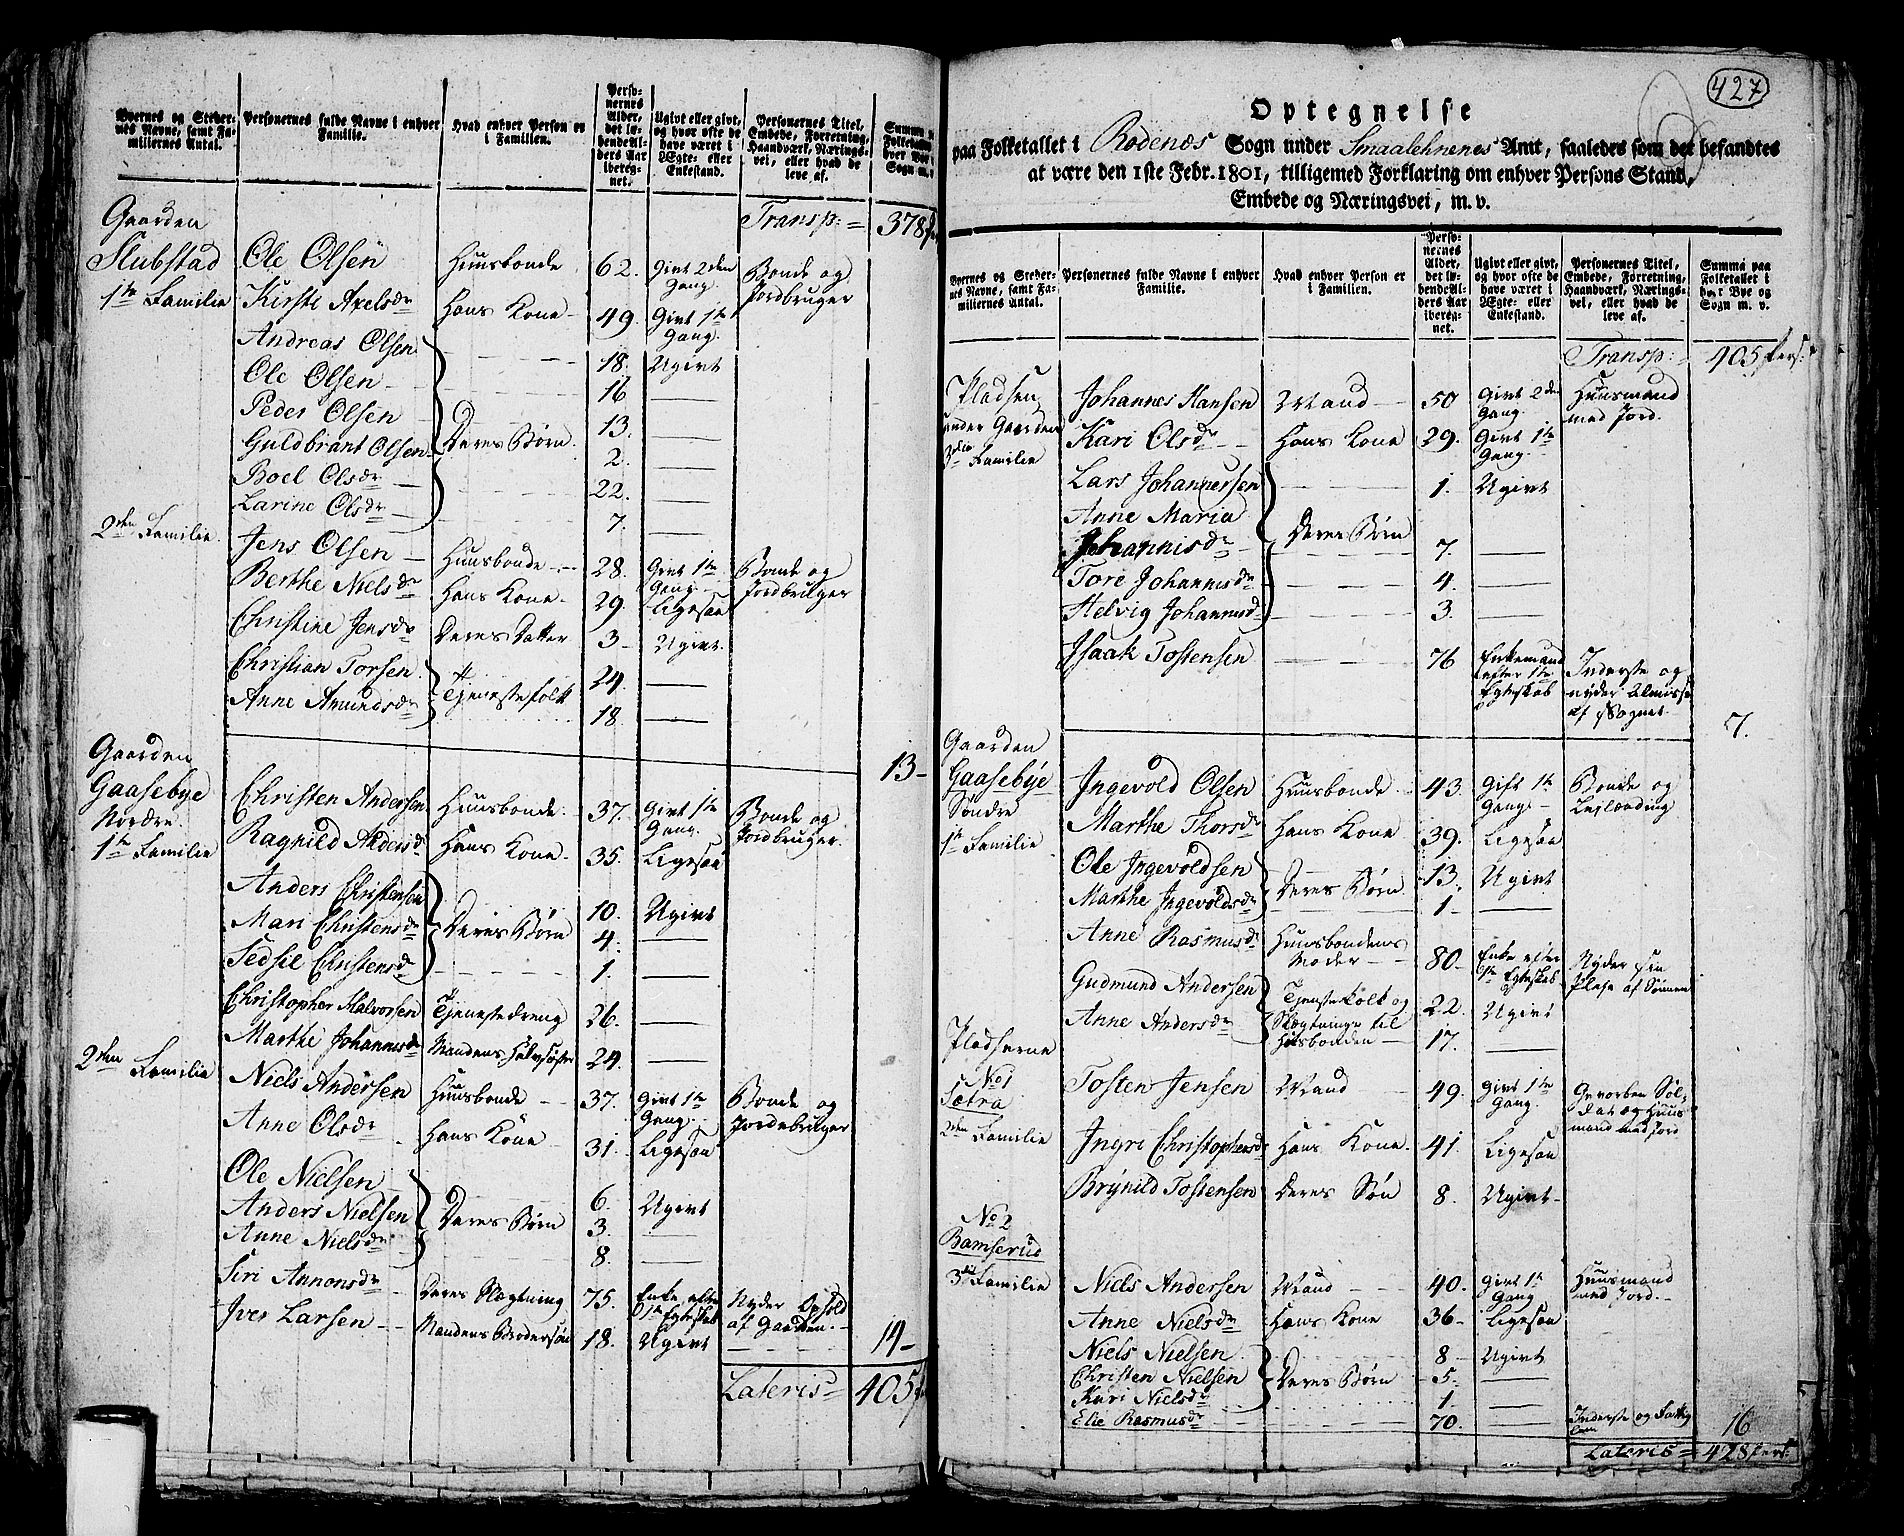 Byernes og Steder-
nes Navne, samt Fa-
miliernes Antal.
Personernes fulde Navne i enhver
Familie.
Hvad enhver Person er
i Familien.
Perso-
nernes
Alder,
det lø-
bende Al-
ders Aar
ibereg-
net.
Ugivt eller givt,
og hvor ofte de
have været i
Ægte- eller
Enkestand.
Personernes Titel,
Embede, Forretning,
Haandværk, Nærings-
vei, eller hvad de
leve af.
Transp:= 378
Gaarden
Slubstad
1te Familie
Ole Olsen Huusbonde 62. Givt 2den Gang Bonde og Jordbruger
Kirsti Axelsdr Hans Kone 49. Givt 1te Gang
Andreas Olsen 18. Ugivt
Ole Olsen 16 —
Peder Olsen Deres Børn 13. —
Guldbrant Olsen 2. —
Boel Olsdr 22. —
Larine Olsdr 7. —
2den Familie
Jens Olsen Huusbonde 28. Givt 1te Gang Bonde og Jordbruger
Berthe Nielsdr Hans Kone 29. Ligesaa
Christine Jensdr Deres Datter 3 Ugivt
Christian Torsen Tjenestefolk 24. —
Anne Amundsdr 18. —
13
Gaarden
Gaasebye
Nordre
1te Familie
Christen Andersen Huusbonde 37. Givt 1te Gang Bonde og Jordbruger
Ragnild Andersdr Hans Kone 35. Ligesaa
Anders Christensen 10. Ugivt
Mari Christensdr Deres Børn 4. —
Sedsil Christensdr 1. —
Christopher Halvorsen Tjenestedreng 26. —
Marthe Johannesdr Mandens Halvsøster 24. —
2den Familie
Niels Andersen Huusbonde 37. Givt 1te Gang Bonde og Jordebruger
Anne Olsdr Hans Kone 31. Ligesaa
Ole Nielsen 6. Ugivt
Anders Nielsen Deres Børn 3. —
Anne Nielsdr 8. —
Siri Annonsdr Deres Slægtning 75. Enke efter 1te Egteskab Nyder Ophold af Gaarden
Iver Larsen Mandens Brodersøn 18. Ugivt
14
Lateris= 405
427
Optegnelse
paa Folketallet i Rødenæs Sogn under Smaalehnenes Amt, saaledes som det befandtes
at være den 1ste Febr. 1801, tilligemed Forklaring om enhver Persons Stand,
Embede og Næringsvei, m. v.
Byernes og Steder-
nes Navne, samt Fa-
miliernes Antal.
Personernes fulde Navne i enhver
Familie.
Hvad enhver Person er
i Familien.
Perso-
nernes
Alder,
det lø-
bende Al-
ders Aar
ibereg-
net.
Ugivt eller givt,
og hvor ofte de
have været i
Ægte- eller
Enkestand.
Personernes Titel,
Embede, Forretning,
Haandværk, Nærings-
vei, eller hvad de
leve af.
Summa paa
Folketallet i
hver Bye og
Sogn m. v.
Transp:= 405 Pers:
Pladsen
under Gaarden
3die Familie
Johannes Hansen Mand 50 Givt 2den Gang Huusmand med Jord.
Kari Olsdr Hans Kone 29. Givt 1te Gang
Lars Johannersen 1. Ugivt
Anne Maria
Johannisdr Deres Børn 7. —
Tore Johannisdr 4. —
Helvig Johannisdr 3. —
Isaak Tostensen 76 Enkemand efter 1te Egteskab Inderste og nyder Almisse af Sognet
7.
Gaarden
Gaasebye
Søndre
1te Familie
Ingevold Olsen Huusbonde 43. Gift 1te Gang Bonde og Leilænding
Marthe Thorsdr Hans Kone 39. Ligesaa
Ole Ingevoldsen Deres Børn 13. Ugivt
Marthe Ingevoldsdr 1 —
Anne Rasmusdr Huusbondens Moder 80. Enke efter 1te Egteskab Nyder sin Pleje af Sønnen
Gudmund Andersen Tjenestefolk og 22. Ugivt
Anne Andersdr Slægtninge til Husbonden 17. —
Pladserne
No 1
Sætra
2den Familie
Tosten Jensen Mand 49. Givt 1te Gang Gevorben Sol- dat og Huus mand med Jord
Ingri Christophersdr Hans Kone 41. Ligesaa
Brynild Tostensen Deres Søn 8. Ugivt
No 2
Bamserud
3die Familie
Niels Andersen Mand 40. Givt 1te Gang Huusmand med Jord.
Anne Nielsdr Hans Kone 36 Ligesaa
Niels Nielsen 8 Ugivt
Christen Nielsen Deres Børn 5. —
Kari Nielsdr 1. —
Elie Rasmusdr 70. — Inderste og Fattig
16
Lateris = 428 Pers: